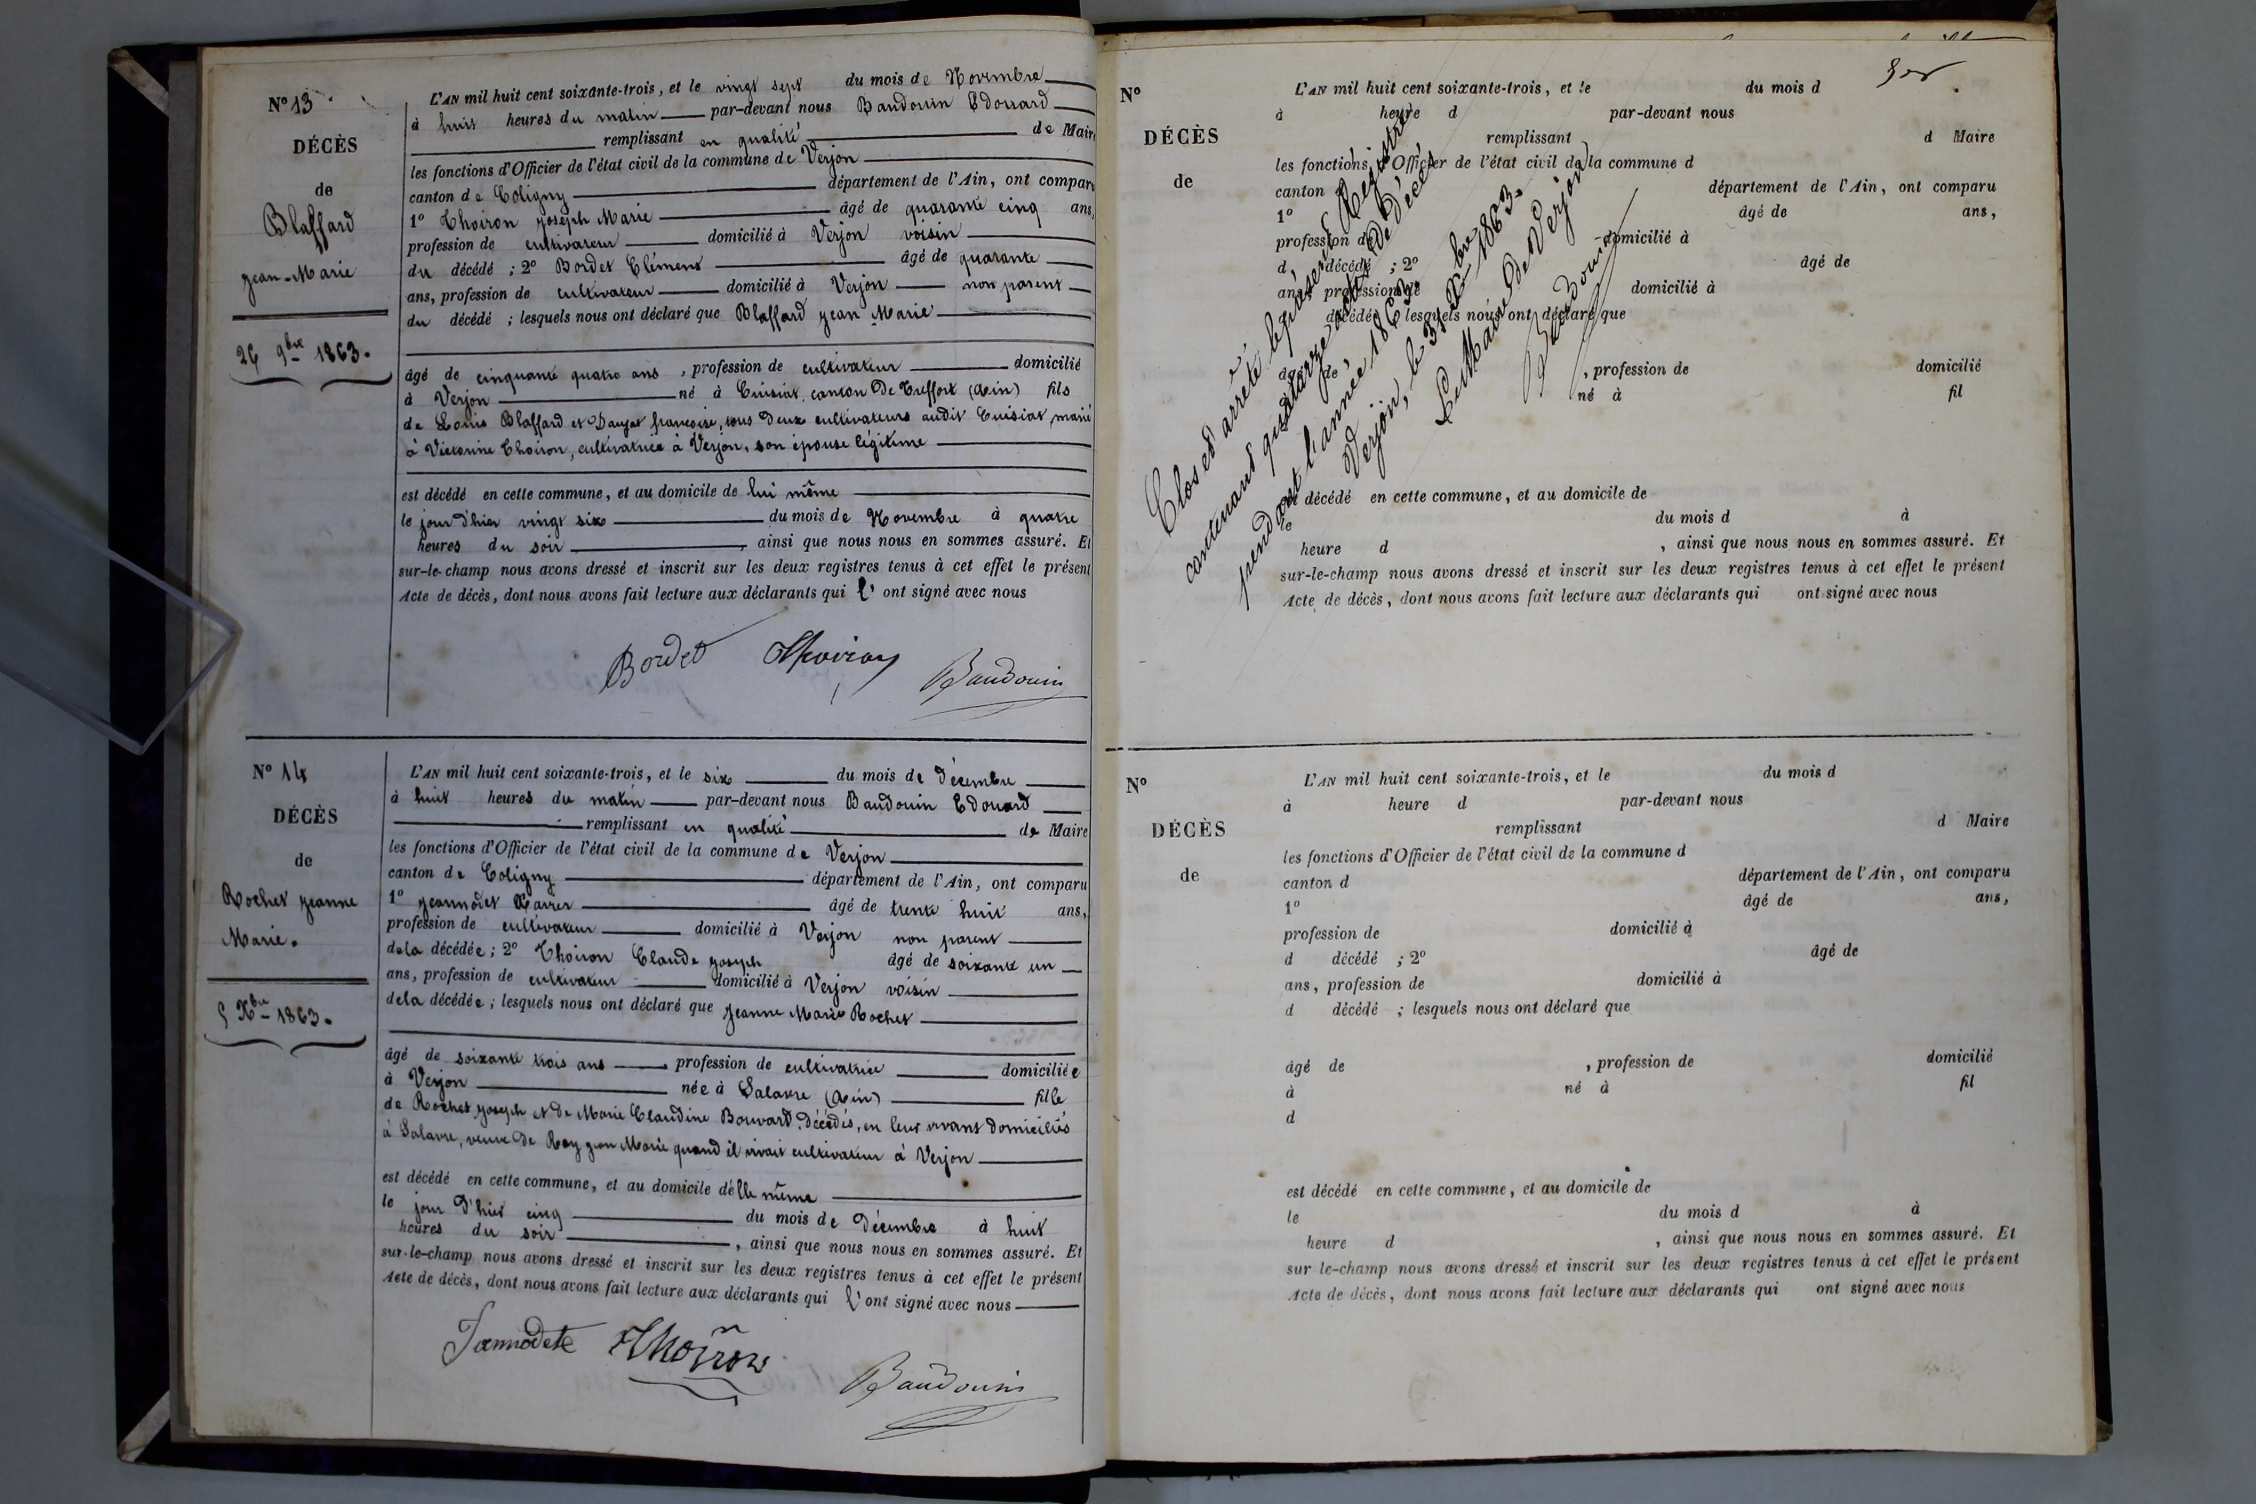 N° 13
DÉCÈS
de
Blaffard
Jean-Marie
26 9bre 1863.
L'AN mil huit cent soixante-trois, et le vingt sept du mois de Novembre
à huit heures du matin par-devant nous Baudouin Edouard
remplissant en qualité de Maire
les fonctions d'Officier de l'état civil de la commune de Verjon
canton de Coligny département de l'Ain, ont comparu
1° Thoiron Joseph Marie âgé de quarante cinq ans,
profession de cultivateur domicilié à Verjon voisin
du décédé ; 2° Bordet Clément âgé de quarante
ans, profession de cultivateur domicilié à Verjon non parent
du décédé ; lesquels nous ont déclaré que Blaffard Jean Marie
âgé de cinquante quatre ans , profession de cultivateur domicilié
à Verjon né à Cuisiat, canton de Treffort (Ain) fils
de Louis Blaffard et Daujat françoise, tous deux cultivateurs audit Cuisiat, marié
à Victorine Thoiron, cultivatrice à Verjon, son épouse légitime
est décédé en cette commune, et au domicile de lui même
le jour d'hier vingt six du mois de Novembre à quatre
heures du soir , ainsi que nous nous en sommes assuré. Et
sur-le-champ nous avons dressé et inscrit sur les deux registres tenus à cet effet le présent
Acte de décès, dont nous avons fait lecture aux déclarants qui l' ont signé avec nous
Bordet Thoiron Baudouin
N° 14
DÉCÈS
de
Rochet Jeanne
Marie.
5 Xbre 1863.
L'AN mil huit cent soixante-trois, et le six du mois de Décembre
à huit heures du matin par-devant nous Baudouin Edouard
remplissant en qualité de Maire
les fonctions d'Officier de l'état civil de la commune de Verjon
canton de Coligny département de l'Ain, ont comparu
1° Jeannodet Xavier âgé de trente huit ans,
profession de cultivateur domicilié à Verjon non parent
de la décédée ; 2° Thoiron Claude Joseph âgé de soixante un
ans, profession de cultivateur domicilié à Verjon voisin
de la décédée ; lesquels nous ont déclaré que Jeanne Marie Rochet
âgé de soixante trois ans , profession de cultivatrice domiciliée
à Verjon née à Salavre (Ain) fille
de Rochet Joseph et de Marie Claudine Bouvard. décédés, en leur vivant domiciliés
à Salavre, veuve de Roy Jean Marie quand il vivait cultivateur à Verjon
est décédé en cette commune, et au domicile délle même
le jour d'hier cinq du mois de Décembre à huit
heures du soir , ainsi que nous nous en sommes assuré. Et
sur-le-champ nous avons dressé et inscrit sur les deux registres tenus à cet effet le présent
Acte de décès, dont nous avons fait lecture aux déclarants qui l' ont signé avec nous
Jannodete Thoiron Baudouin
N°
DÉCÈS
de
L'AN mil huit cent soixante-trois, et le du mois d
à heure d par-devant nous
remplissant d Maire
les fonctions d'Officier de l'état civil de la commune d
canton d département de l'Ain, ont comparu
1° âgé de ans,
profession de domicilié à
d décédé ; 2° âgé de
ans, profession de domicilié à
d décédé ; lesquels nous ont déclaré que
âgé de , profession de domicilié
à né à fil
est décédé en cette commune, et au domicile de
le du mois d à
heure d , ainsi que nous nous en sommes assuré. Et
sur-le-champ nous avons dressé et inscrit sur les deux registres tenus à cet effet le présent
Acte de décès, dont nous avons fait lecture aux déclarants qui ont signé avec nous
Clos et arrêté le présent Régistre
contenant quatorze actes de décès
pendant l'année 1863.
Verjon, le 31 Xbre 1863.
Le Maire de Verjon
Baudouin
N°
DÉCÈS
de
L'AN mil huit cent soixante-trois, et le du mois d
à heure d par-devant nous
remplissant d Maire
les fonctions d'Officier de l'état civil de la commune d
canton d département de l'Ain, ont comparu
1° âgé de ans,
profession de domicilié à
d décédé ; 2° âgé de
ans, profession de domicilié à
d décédé ; lesquels nous ont déclaré que
âgé de , profession de domicilié
à né à fil
d
est décédé en cette commune, et au domicile de
le du mois d à
heure d , ainsi que nous nous en sommes assuré. Et
sur le-champ nous avons dressé et inscrit sur les deux registres tenus à cet effet le présent
Acte de décès, dont nous avons fait lecture aux déclarants qui ont signé avec nous